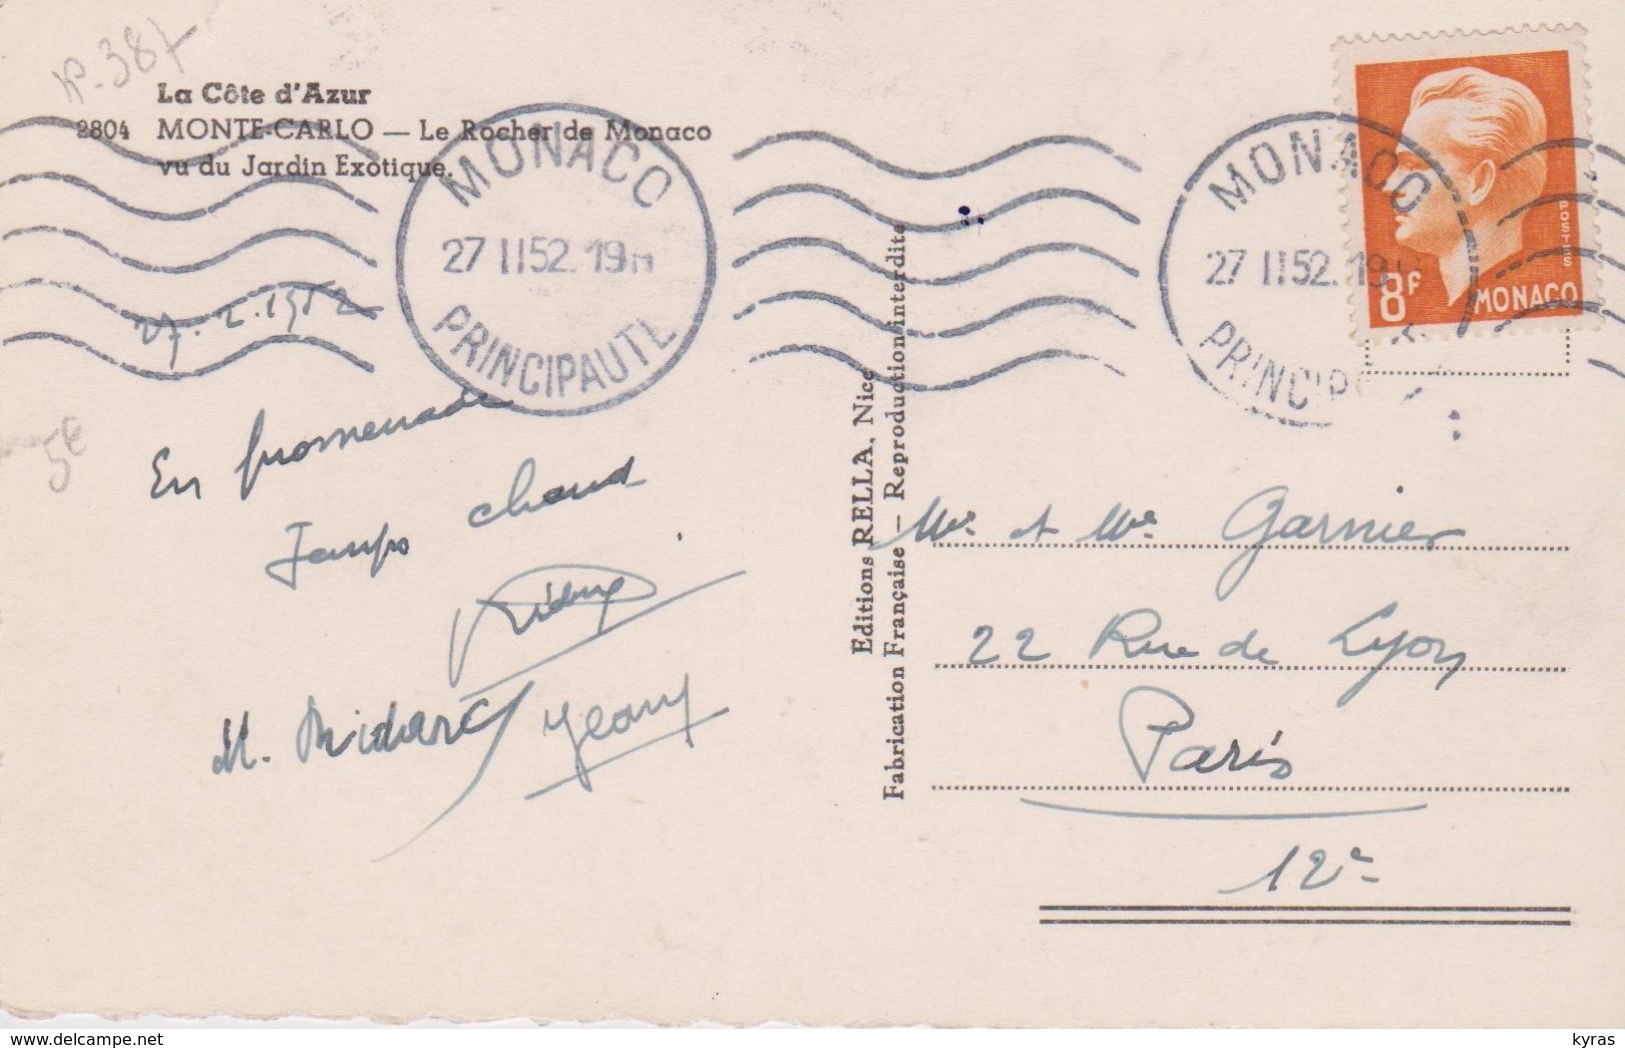 N°. 387
La Côte d'Azur
2804 MONTE-CARLO — Le Rocher de Monaco
vu du Jardin Exotique.
MONACO
27 II 52. 19H
PRINCIPAUTE
MONACO
27 II 52. 19
PRINCIP
POSTES
8F MONACO
27. 2. 1952
5€
En promenade
Temps chaud
M.
Jeany
Editions RELLA, Nice
Fabrication Française — Reproduction interdite
Mr. et Me. Garnier
22 Rue de Lyon
Paris
12e
delcampe.net
kyras